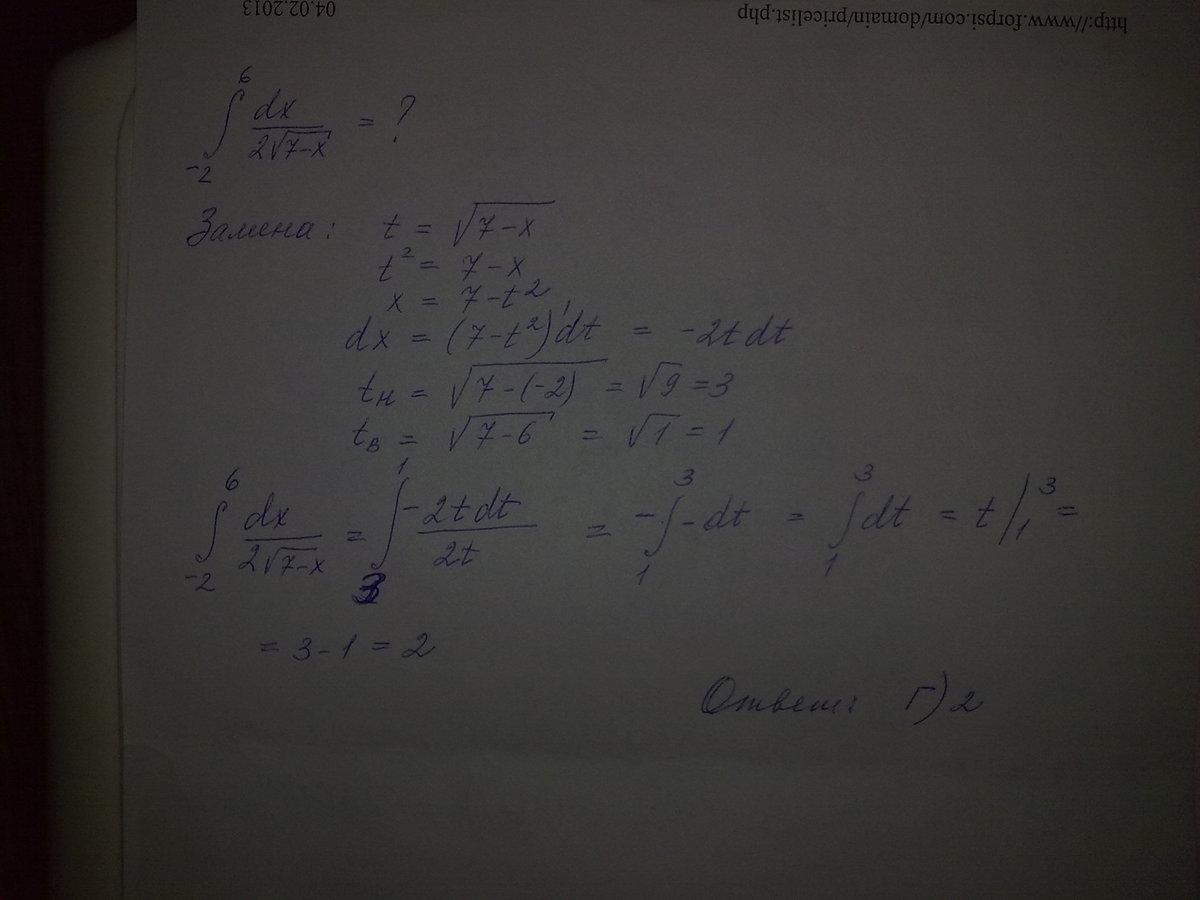 http://www.forpsi.com/domain/pricelist.php 04.02.2013
∫_{-2}^{6} dx/(2√(7-x)) = ?
Замена: t = √(7-x)
t² = 7-x
x = 7-t²
dx = (7-t²)'dt = -2t dt
t_н = √(7-(-2)) = √9 = 3
t_в = √(7-6) = √1 = 1
∫_{-2}^{6} dx/(2√(7-x)) = ∫_{3}^{1} -2t dt/(2t) = -∫_{1}^{3} -dt = ∫_{1}^{3} dt = t|_{1}^{3} =
= 3-1 = 2
Ответ: Г) 2